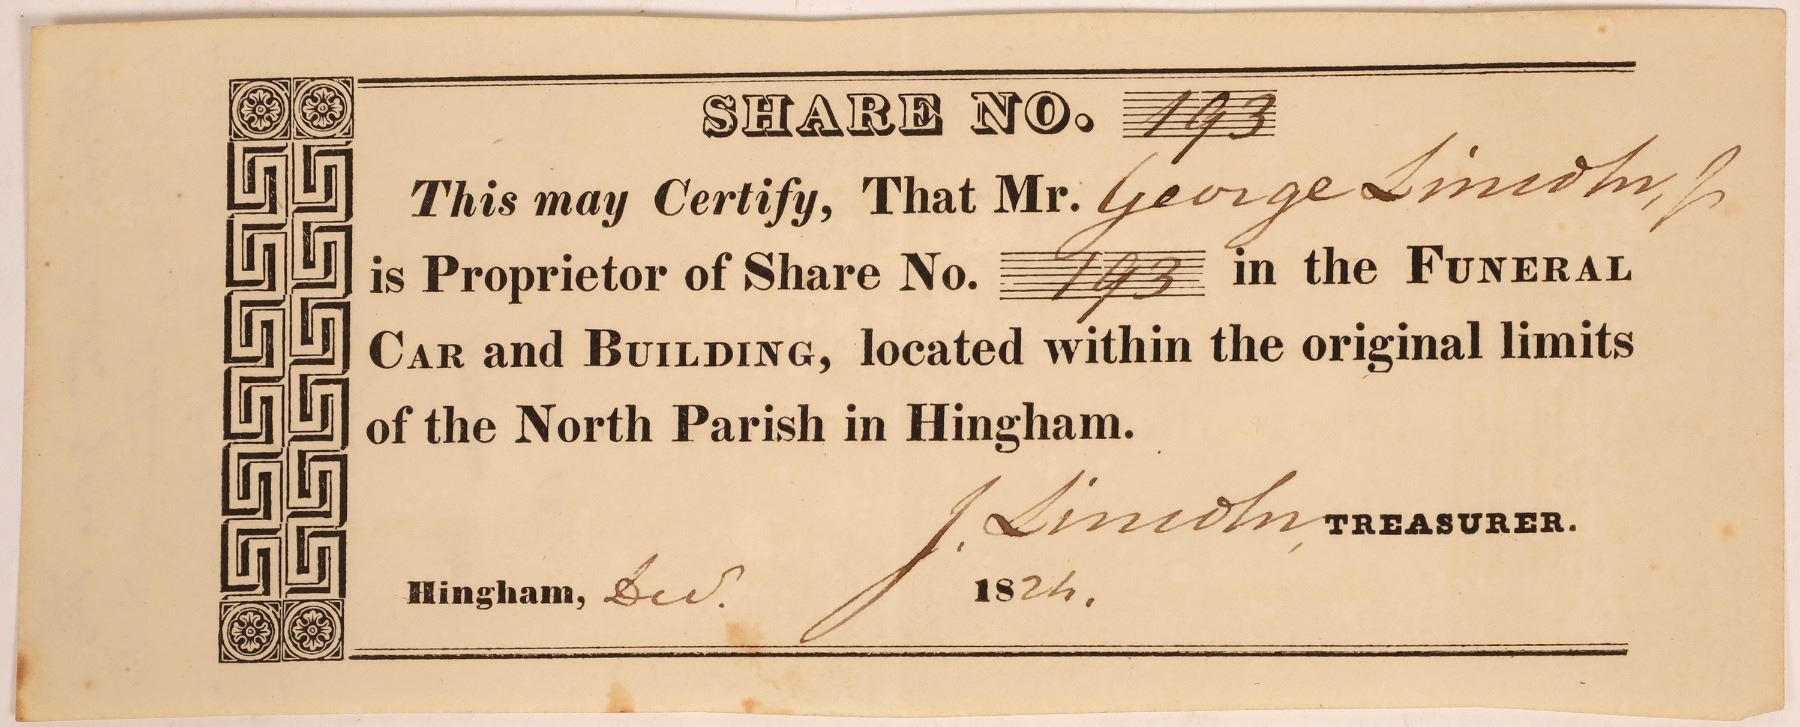 SHARE NO. 193
This may Certify, That Mr. George Lincoln, Jr
is Proprietor of Share No. 193 in the FUNERAL
CAR and BUILDING, located within the original limits
of the North Parish in Hingham.
J. Lincoln, TREASURER.
Hingham, Dec. 1826.